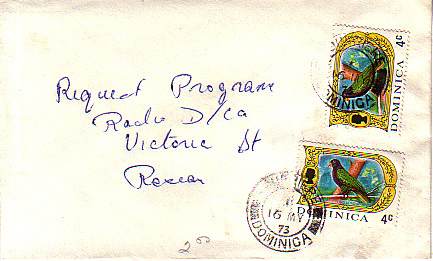 DOMINICA 4c
DOMINICA
Request Program
Radio D/ca
Victoria St
Roseau
DOMINICA 4c
16 MY
73
DOMINICA
2 00